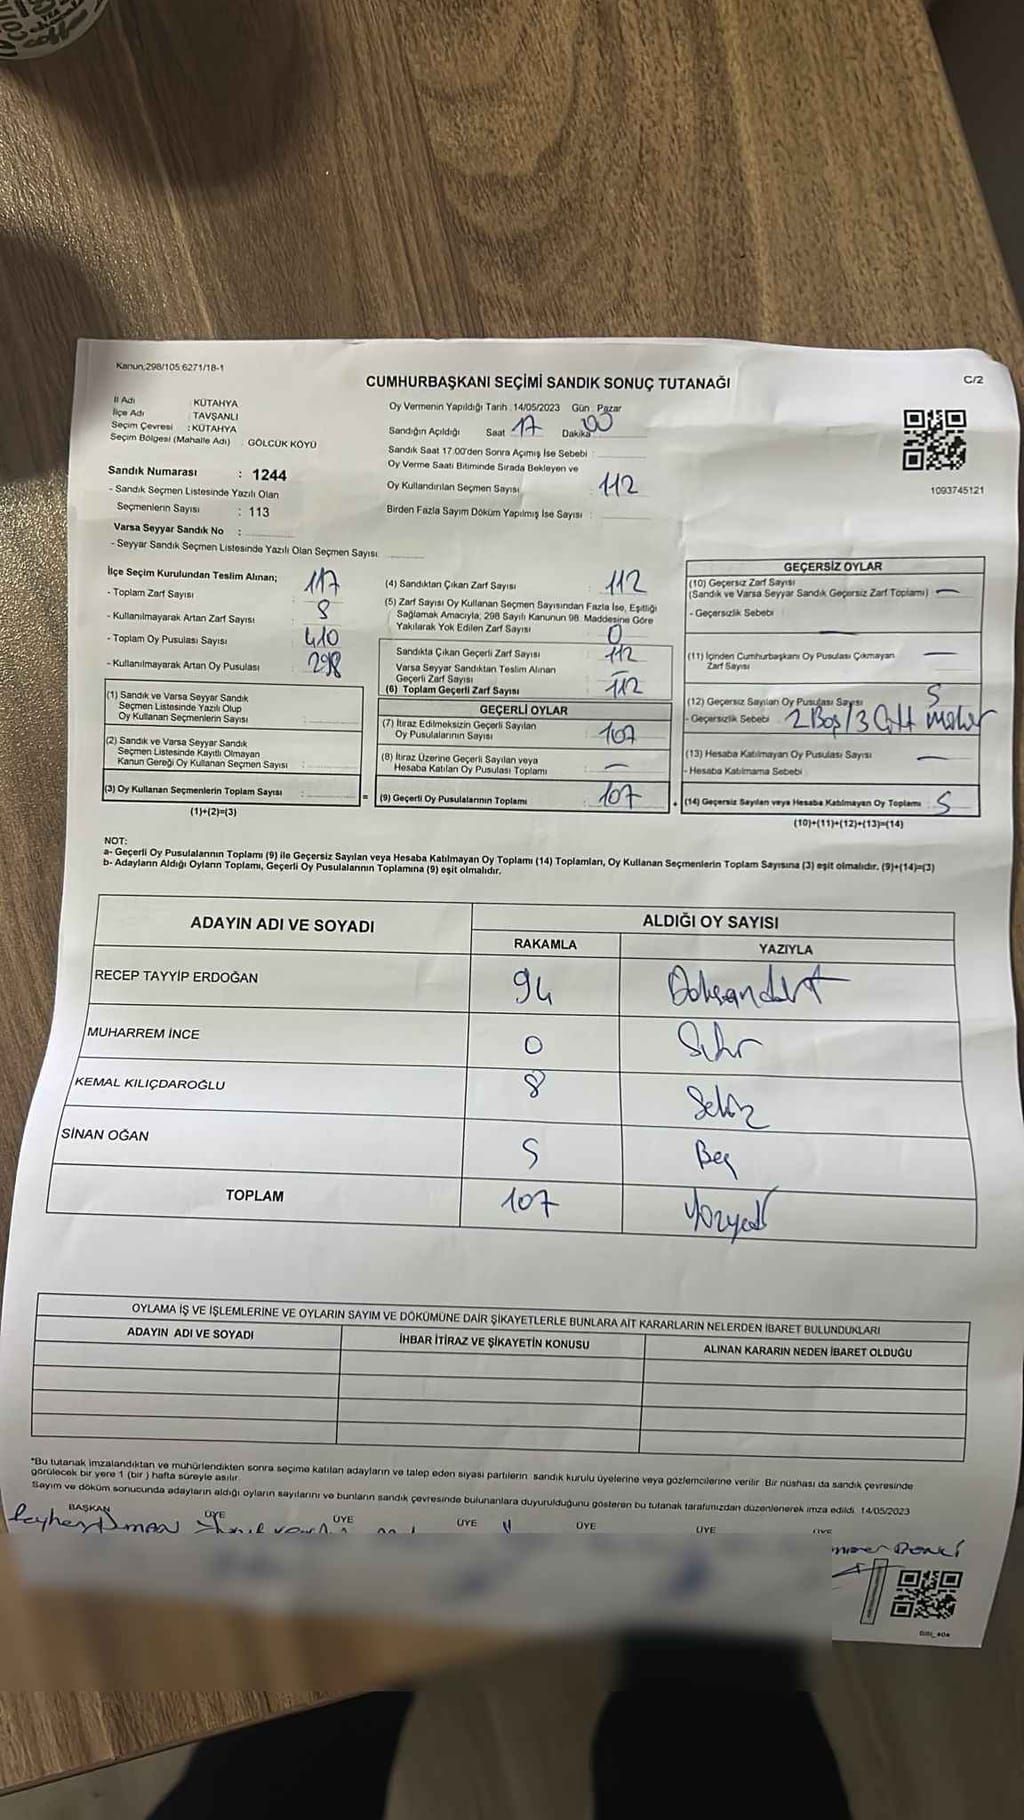 Kanun;298/105 6271/18-1
CUMHURBAŞKANI SEÇİMİ SANDIK SONUÇ TUTANAĞI
C/2
İl Adı : KÜTAHYA
İlçe Adı : TAVŞANLI
Seçim Çevresi : KÜTAHYA
Seçim Bölgesi (Mahalle Adı) : GÖLCÜK KÖYÜ
Sandık Numarası : 1244
- Sandık Seçmen Listesinde Yazılı Olan
Seçmenlerin Sayısı : 113
Varsa Seyyar Sandık No :
- Seyyar Sandık Seçmen Listesinde Yazılı Olan Seçmen Sayısı
Oy Vermenin Yapıldığı Tarih :14/05/2023 Gün : Pazar
Sandığın Açıldığı Saat 17 Dakika 00
Sandık Saat 17:00'den Sonra Açımış İse Sebebi :
Oy Verme Saati Bitiminde Sırada Bekleyen ve
Oy Kullandırılan Seçmen Sayısı : 112
Birden Fazla Sayım Döküm Yapılmış İse Sayısı :
1093745121
İlçe Seçim Kurulundan Teslim Alınan;
- Toplam Zarf Sayısı : 117
- Kullanılmayarak Artan Zarf Sayısı : 8
- Toplam Oy Pusulası Sayısı : 410
- Kullanılmayarak Artan Oy Pusulası : 298
(1) Sandık ve Varsa Seyyar Sandık
Seçmen Listesinde Yazılı Olup
Oy Kullanan Seçmenlerin Sayısı :
(2) Sandık ve Varsa Seyyar Sandık
Seçmen Listesinde Kayıtlı Olmayan
Kanun Gereği Oy Kullanan Seçmen Sayısı :
(3) Oy Kullanan Seçmenlerin Toplam Sayısı :
(1)+(2)=(3)
(4) Sandıktan Çıkan Zarf Sayısı : 112
(5) Zarf Sayısı Oy Kullanan Seçmen Sayısından Fazla İse, Eşitliği
Sağlamak Amacıyla, 298 Sayılı Kanunun 98. Maddesine Göre
Yakılarak Yok Edilen Zarf Sayısı : 0
Sandıkta Çıkan Geçerli Zarf Sayısı : 112
Varsa Seyyar Sandıktan Teslim Alınan
Geçerli Zarf Sayısı
(6) Toplam Geçerli Zarf Sayısı : 112
GEÇERLİ OYLAR
(7) İtiraz Edilmeksizin Geçerli Sayılan
Oy Pusulalarının Sayısı : 107
(8) İtiraz Üzerine Geçerli Sayılan veya
Hesaba Katılan Oy Pusulası Toplamı : —
=
(9) Geçerli Oy Pusulalarının Toplamı : 107
+
GEÇERSİZ OYLAR
(10) Geçersiz Zarf Sayısı
(Sandık ve Varsa Seyyar Sandık Geçersiz Zarf Toplamı) : —
- Geçersizlik Sebebi :
(11) İçinden Cumhurbaşkanı Oy Pusulası Çıkmayan
Zarf Sayısı : —
(12) Geçersiz Sayılan Oy Pusulası Sayısı : 5
- Geçersizlik Sebebi : 2 Boş / 3 Çift mühür
(13) Hesaba Katılmayan Oy Pusulası Sayısı : —
- Hesaba Katılmama Sebebi :
(14) Geçersiz Sayılan veya Hesaba Katılmayan Oy Toplamı : 5
(10)+(11)+(12)+(13)=(14)
NOT:
a- Geçerli Oy Pusulalarının Toplamı (9) ile Geçersiz Sayılan veya Hesaba Katılmayan Oy Toplamı (14) Toplamları, Oy Kullanan Seçmenlerin Toplam Sayısına (3) eşit olmalıdır. (9)+(14)=(3)
b- Adayların Aldığı Oyların Toplamı, Geçerli Oy Pusulalarının Toplamına (9) eşit olmalıdır.
ADAYIN ADI VE SOYADI
ALDIĞI OY SAYISI
RAKAMLA YAZIYLA
RECEP TAYYİP ERDOĞAN 94 Doksandört
MUHARREM İNCE 0 Sıfır
KEMAL KILIÇDAROĞLU 8 Sekiz
SİNAN OĞAN 5 Beş
TOPLAM 107 Yüzyedi
OYLAMA İŞ VE İŞLEMLERİNE VE OYLARIN SAYIM VE DÖKÜMÜNE DAİR ŞİKAYETLERLE BUNLARA AİT KARARLARIN NELERDEN İBARET BULUNDUKLARI
ADAYIN ADI VE SOYADI İHBAR İTİRAZ VE ŞİKAYETİN KONUSU ALINAN KARARIN NEDEN İBARET OLDUĞU
*Bu tutanak imzalandıktan ve mühürlendikten sonra seçime katılan adayların ve talep eden siyasi partilerin sandık kurulu üyelerine veya gözlemcilerine verilir. Bir nüshası da sandık çevresinde
görülecek bir yere 1 (bir ) hafta süreyle asılır.
Sayım ve döküm sonucunda adayların aldığı oyların sayılarını ve bunların sandık çevresinde bulunanlara duyurulduğunu gösteren bu tutanak tarafımızdan düzenlenerek imza edildi. 14/05/2023
BAŞKAN ÜYE ÜYE ÜYE ÜYE ÜYE ÜYE